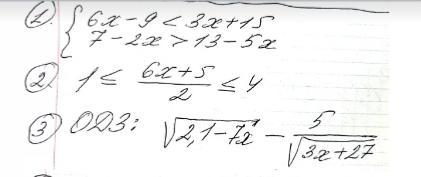 ① { 6x-9 < 3x+15
7-2x > 13-5x
② 1 ≤ (6x+5)/2 ≤ 4
③ ОДЗ: √(2,1-7x) - 5/√(3x+27)